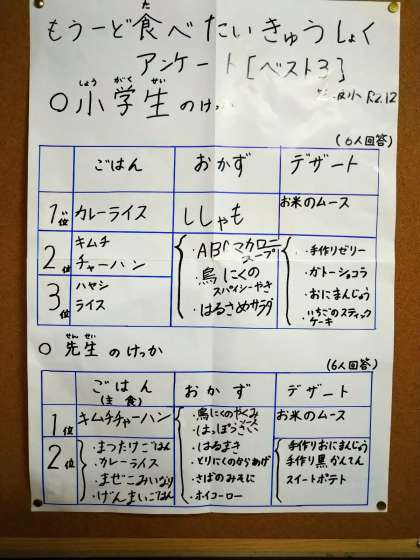 もう一ど食べたいきゅうしょく
た
アンケート[ベスト3]
しょう がく せい
○小学生のけっか
小 R2.12
(6人回答)
ごはん おかず デザート
1位 カレーライス ししゃも お米のムース
2位 キムチチャーハン
3位 ハヤシライス
・ABCマカロニスープ
・鳥にくのスパイシーやき
・はるさめサラダ
・手作りゼリー
・ガトーショコラ
・おにまんじょう
・いちごのスティックケーキ
せん せい
○先生のけっか
(6人回答)
ごはん(主食) おかず デザート
1位 キムチチャーハン お米のムース
2位
・まつたけごはん
・カレーライス
・まぜこみいなり
・げんまいごはん
・鳥にくのやくみソース
・はっぽうさい
・はるまき
・とりにくのからあげ
・さばのみそに
・ホイコーロー
手作りおにまんじょう
手作り黒かんてん
スイートポテト